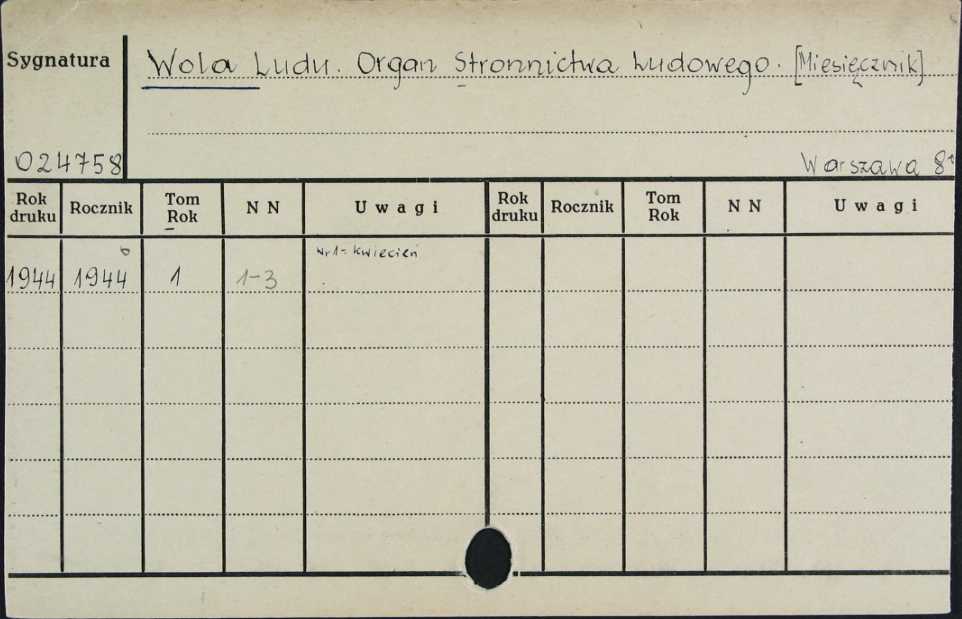 Sygnatura
Wola Ludu. Organ Stronnictwa Ludowego. [Miesięcznik]
024758
Warszawa 8°
Rok druku Rocznik Tom Rok N N Uwagi Rok druku Rocznik Tom Rok N N Uwagi
Nr 1 = kwiecień
1944 1944 1 1-3